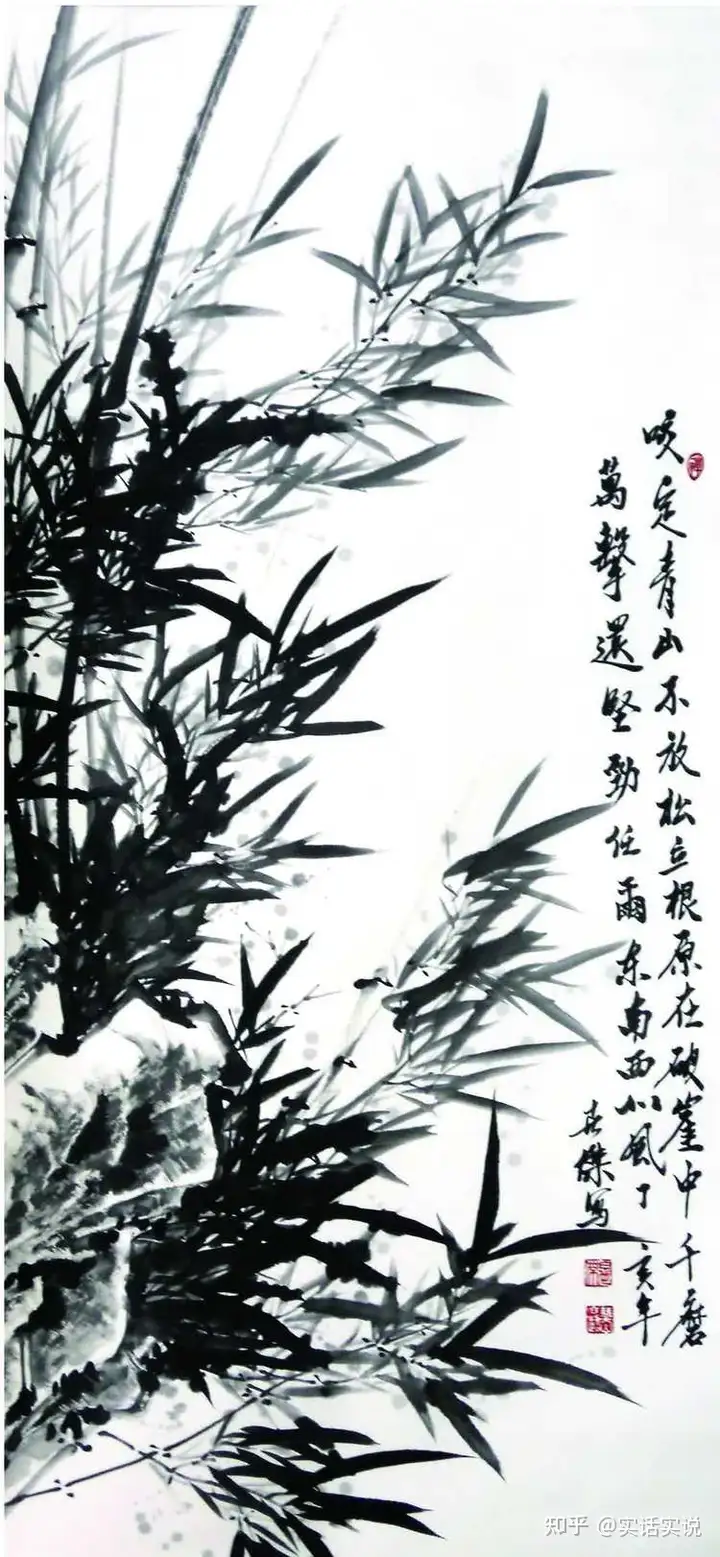 咬定青山不放松立根原在破崖中千磨
萬擊還堅勁任爾东南西北風丁亥年
傑写
知乎 @实话实说